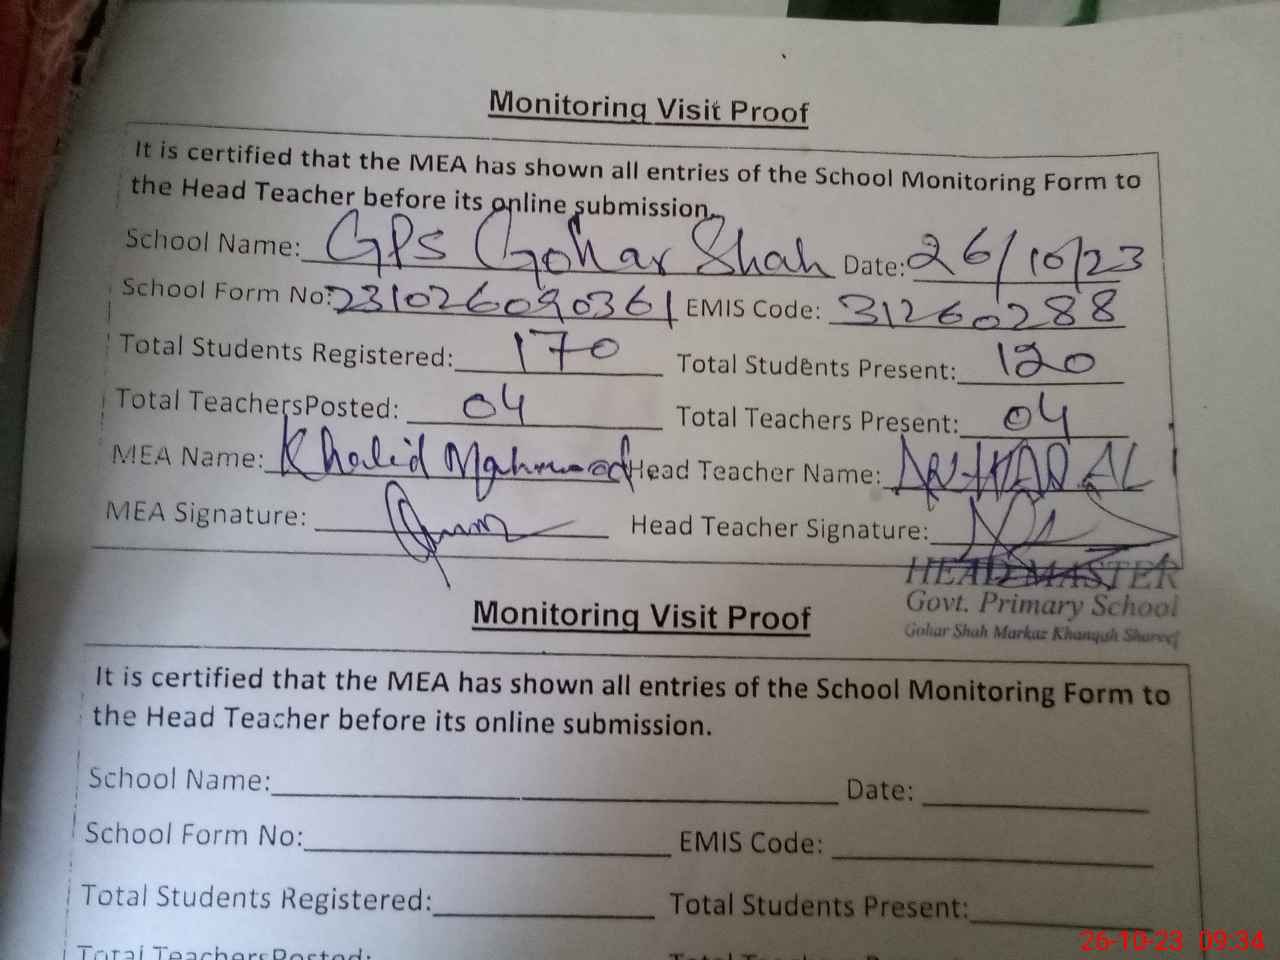 Monitoring Visit Proof
It is certified that the MEA has shown all entries of the School Monitoring Form to
the Head Teacher before its online submission.
School Name: GPS Gohar Shah Date: 26/10/23
School Form No: 231026090361 EMIS Code: 31260288
Total Students Registered: 170 Total Students Present: 120
Total TeachersPosted: 04 Total Teachers Present: 04
MEA Name: Khalid Mahmood Head Teacher Name:
MEA Signature: Head Teacher Signature:
HEAD MASTER
Govt. Primary School
Gohar Shah Markaz Khanqah Shareef
Monitoring Visit Proof
It is certified that the MEA has shown all entries of the School Monitoring Form to
the Head Teacher before its online submission.
School Name: Date:
School Form No: EMIS Code:
Total Students Registered: Total Students Present:
Total TeachersPosted:
26-10-23 09:34